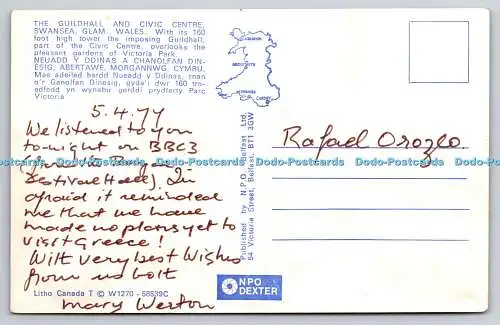 THE GUILDHALL AND CIVIC CENTRE,
SWANSEA, GLAM., WALES. With its 160
foot high tower the imposing Guildhall,
part of the Civic Centre, overlooks the
pleasant gardens of Victoria Park.
NEUADD Y DDINAS A CHANOLFAN DIN-
ESIG, ABERTAWE, MORGANNWG, CYMRU.
Mae adeilad hardd Nuead y Ddinas, rnan
a'r Ganolfan Dinesig, gyda'i dwr 160 trn-
edfedd yn wynabu gerddi prydferty Parc
Victoria
5.4.77
We listened to you
to-night on BBC3
Festival Hall). I'm
afraid it reminded
me that we have
made no plans yet to
visit Greece!
With very best wishes
from us both
Mary Weston
Litho Canada T © W1270 - 58539C
Published by N.P.O. Belfast Ltd.
54 Victoria Street, Belfast, BT1 3GW
NPO
DEXTER
Rafael Orozco.
Dodo-Postcards Dodo-Postcards Dodo-Postcards Dodo-Postcards Dodo-Postcards